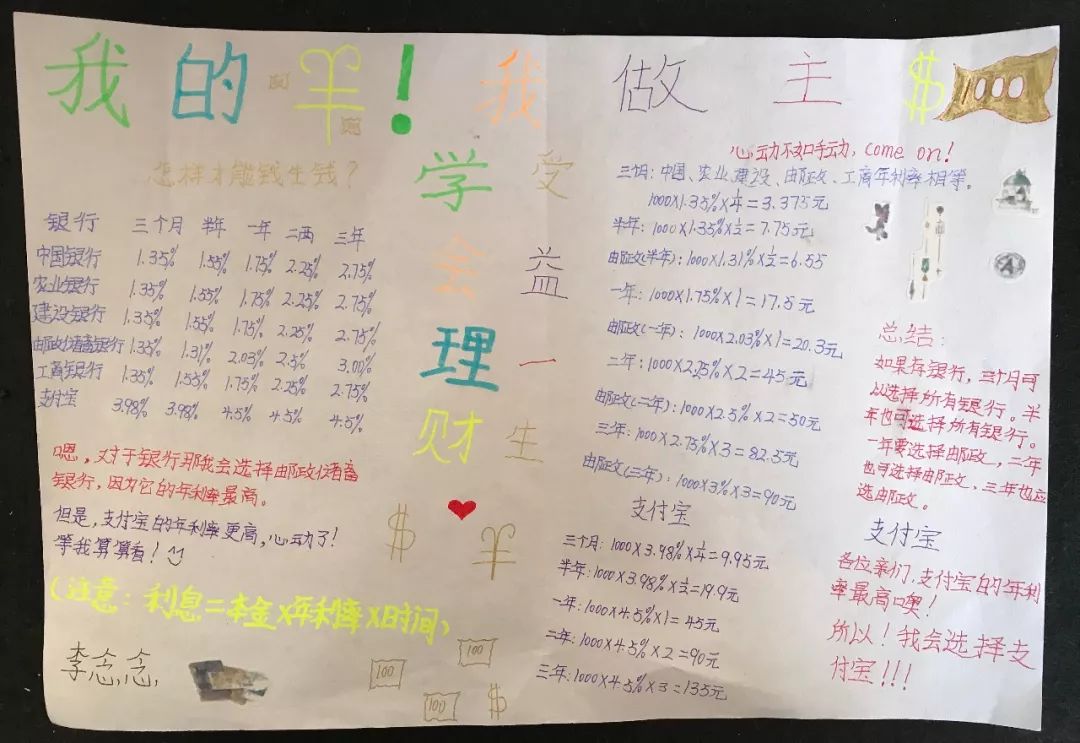 我的羊！我做主 $ 1000
怎样才能钱生钱？
银行 三个月 半年 一年 二两 三年
中国银行 1.35% 1.55% 1.75% 2.25% 2.75%
农业银行 1.35% 1.55% 1.75% 2.25% 2.75%
建设银行 1.35% 1.55% 1.75% 2.25% 2.75%
邮政储蓄银行 1.35% 1.31% 2.03% 2.5% 3.00%
工商银行 1.35% 1.55% 1.75% 2.25% 2.75%
支付宝 3.98% 3.98% 4.5% 4.5% 4.5%
嗯，对于银行那我会选择邮政储畜
银行，因为它的年利率最高。
但是，支付宝的年利率更高，心动了！
等我算算看！
（注意：利息=本金×年利率×时间）
李念念
学会理财
受益一生
$ 羊
100
100
100
$
心动不如手动，come on！
三个月：中国、农业、建设、邮政、工商年利率相等。
1000×1.35%×1/4=3.375元
半年：1000×1.35%×1/2=7.75元
邮政（半年）：1000×1.31%×1/2=6.55
一年：1000×1.75%×1=17.5元
邮政（一年）：1000×2.03%×1=20.3元
二年：1000×2.25%×2=45元
邮政（二年）：1000×2.5%×2=50元
三年：1000×2.75%×3=82.5元
邮政（三年）：1000×3%×3=90元
支付宝
三个月：1000×3.98%×1/4=9.95元
半年：1000×3.98%×1/2=19.9元
一年：1000×4.5%×1=45元
二年：1000×4.5%×2=90元
三年：1000×4.5%×3=135元
总结：
如果存银行，三个月可
以选择所有银行。半
年也可选择所有银行。
一年要选择邮政，二年
也可选择邮政，三年也应
选邮政。
支付宝
各位亲们，支付宝的年利
率最高噢！
所以！我会选择支
付宝！！！